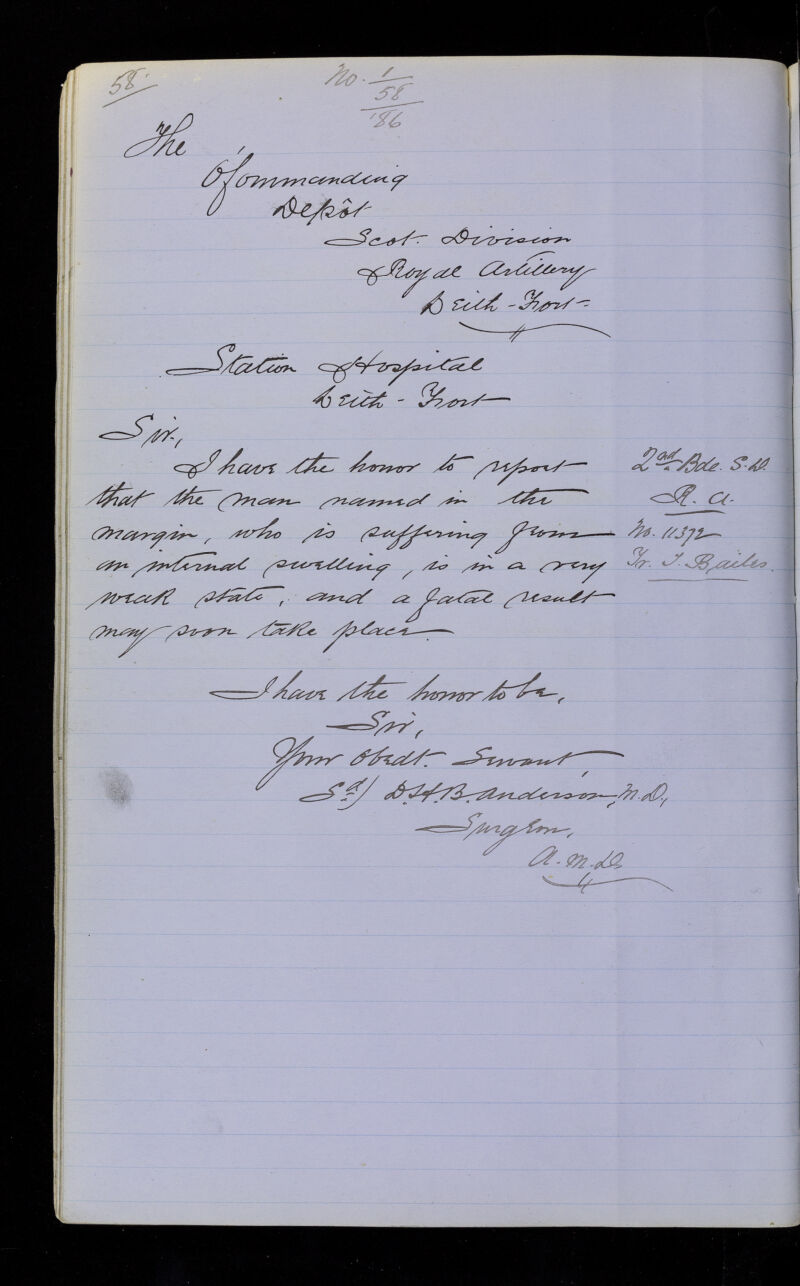 58.
No. 1
58
'86
The
O'Commanding
Depôt
Scot. Division
Royal Artillery
Leith-Fort
Station Hospital
Leith-Fort
Sir,
I have the honor to report
that the man named in the
margin, who is suffering from
an internal swelling, is in a very
weak state, and a fatal result
may soon take place.
2nd Bde. S.D.
R.A.
No. 11372
Gr. T. Bailes.
I have the honor to be,
Sir,
Your Obedt. Servant,
Sd/ D.H.B. Anderson, M.D.,
Surgeon,
A.M.D.